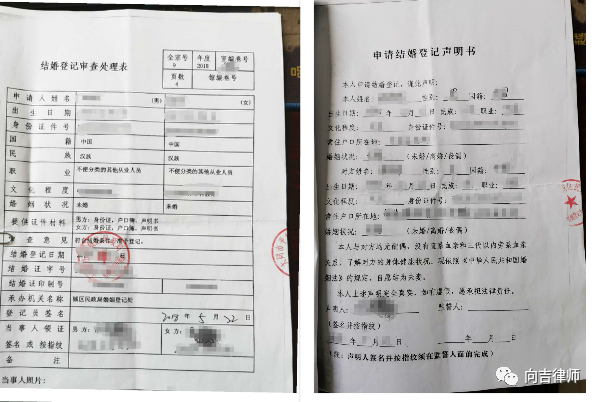 结婚登记审查处理表
全宗号 年度 室编卷号
9 2018
页数 馆编卷号
4
申请人姓名 (男) (女)
出生日期
身份证件号
国籍 中国 中国
民族 汉族 汉族
职业 不便分类的其他从业人员 不便分类的其他从业人员
文化程度
婚姻状况 未婚 未婚
提供证件材料 男方：身份证，户口簿，声明书
女方：身份证，户口簿，声明书
审查意见 符合结婚条件，准予登记。
结婚登记日期
结婚证字号
结婚证印制号
承办机关名称 区民政局婚姻登记处
登记员签名 2018年5月22日
当事人领证 男方： 女方：
签名或按指纹
备注
当事人照片：
申请结婚登记声明书
本人申请结婚登记，谨此声明：
本人姓名： 性别： 国籍：
出生日期： 年 月 日 民族： 职业：
文化程度： 身份证件号：
常住户口所在地：
婚姻状况： (未婚/离婚/丧偶)
对方姓名： 性别： 国籍：
出生日期： 年 月 日 民族： 职业：
文化程度： 身份证件号：
常住户口所在地：
婚姻状况： (未婚/离婚/丧偶)
本人与对方均无配偶，没有直系血亲和三代以内旁系血亲
关系，了解对方的身体健康状况。现依据《中华人民共和国婚
姻法》的规定，自愿结为夫妻。
本人上述声明完全真实，如有虚假，愿承担法律责任。
声明人： 监誓人：
(签名并按指纹)
年 月 日 年 月 日
(注：声明人签名并按指纹须在监誓人面前完成)
向吉律师